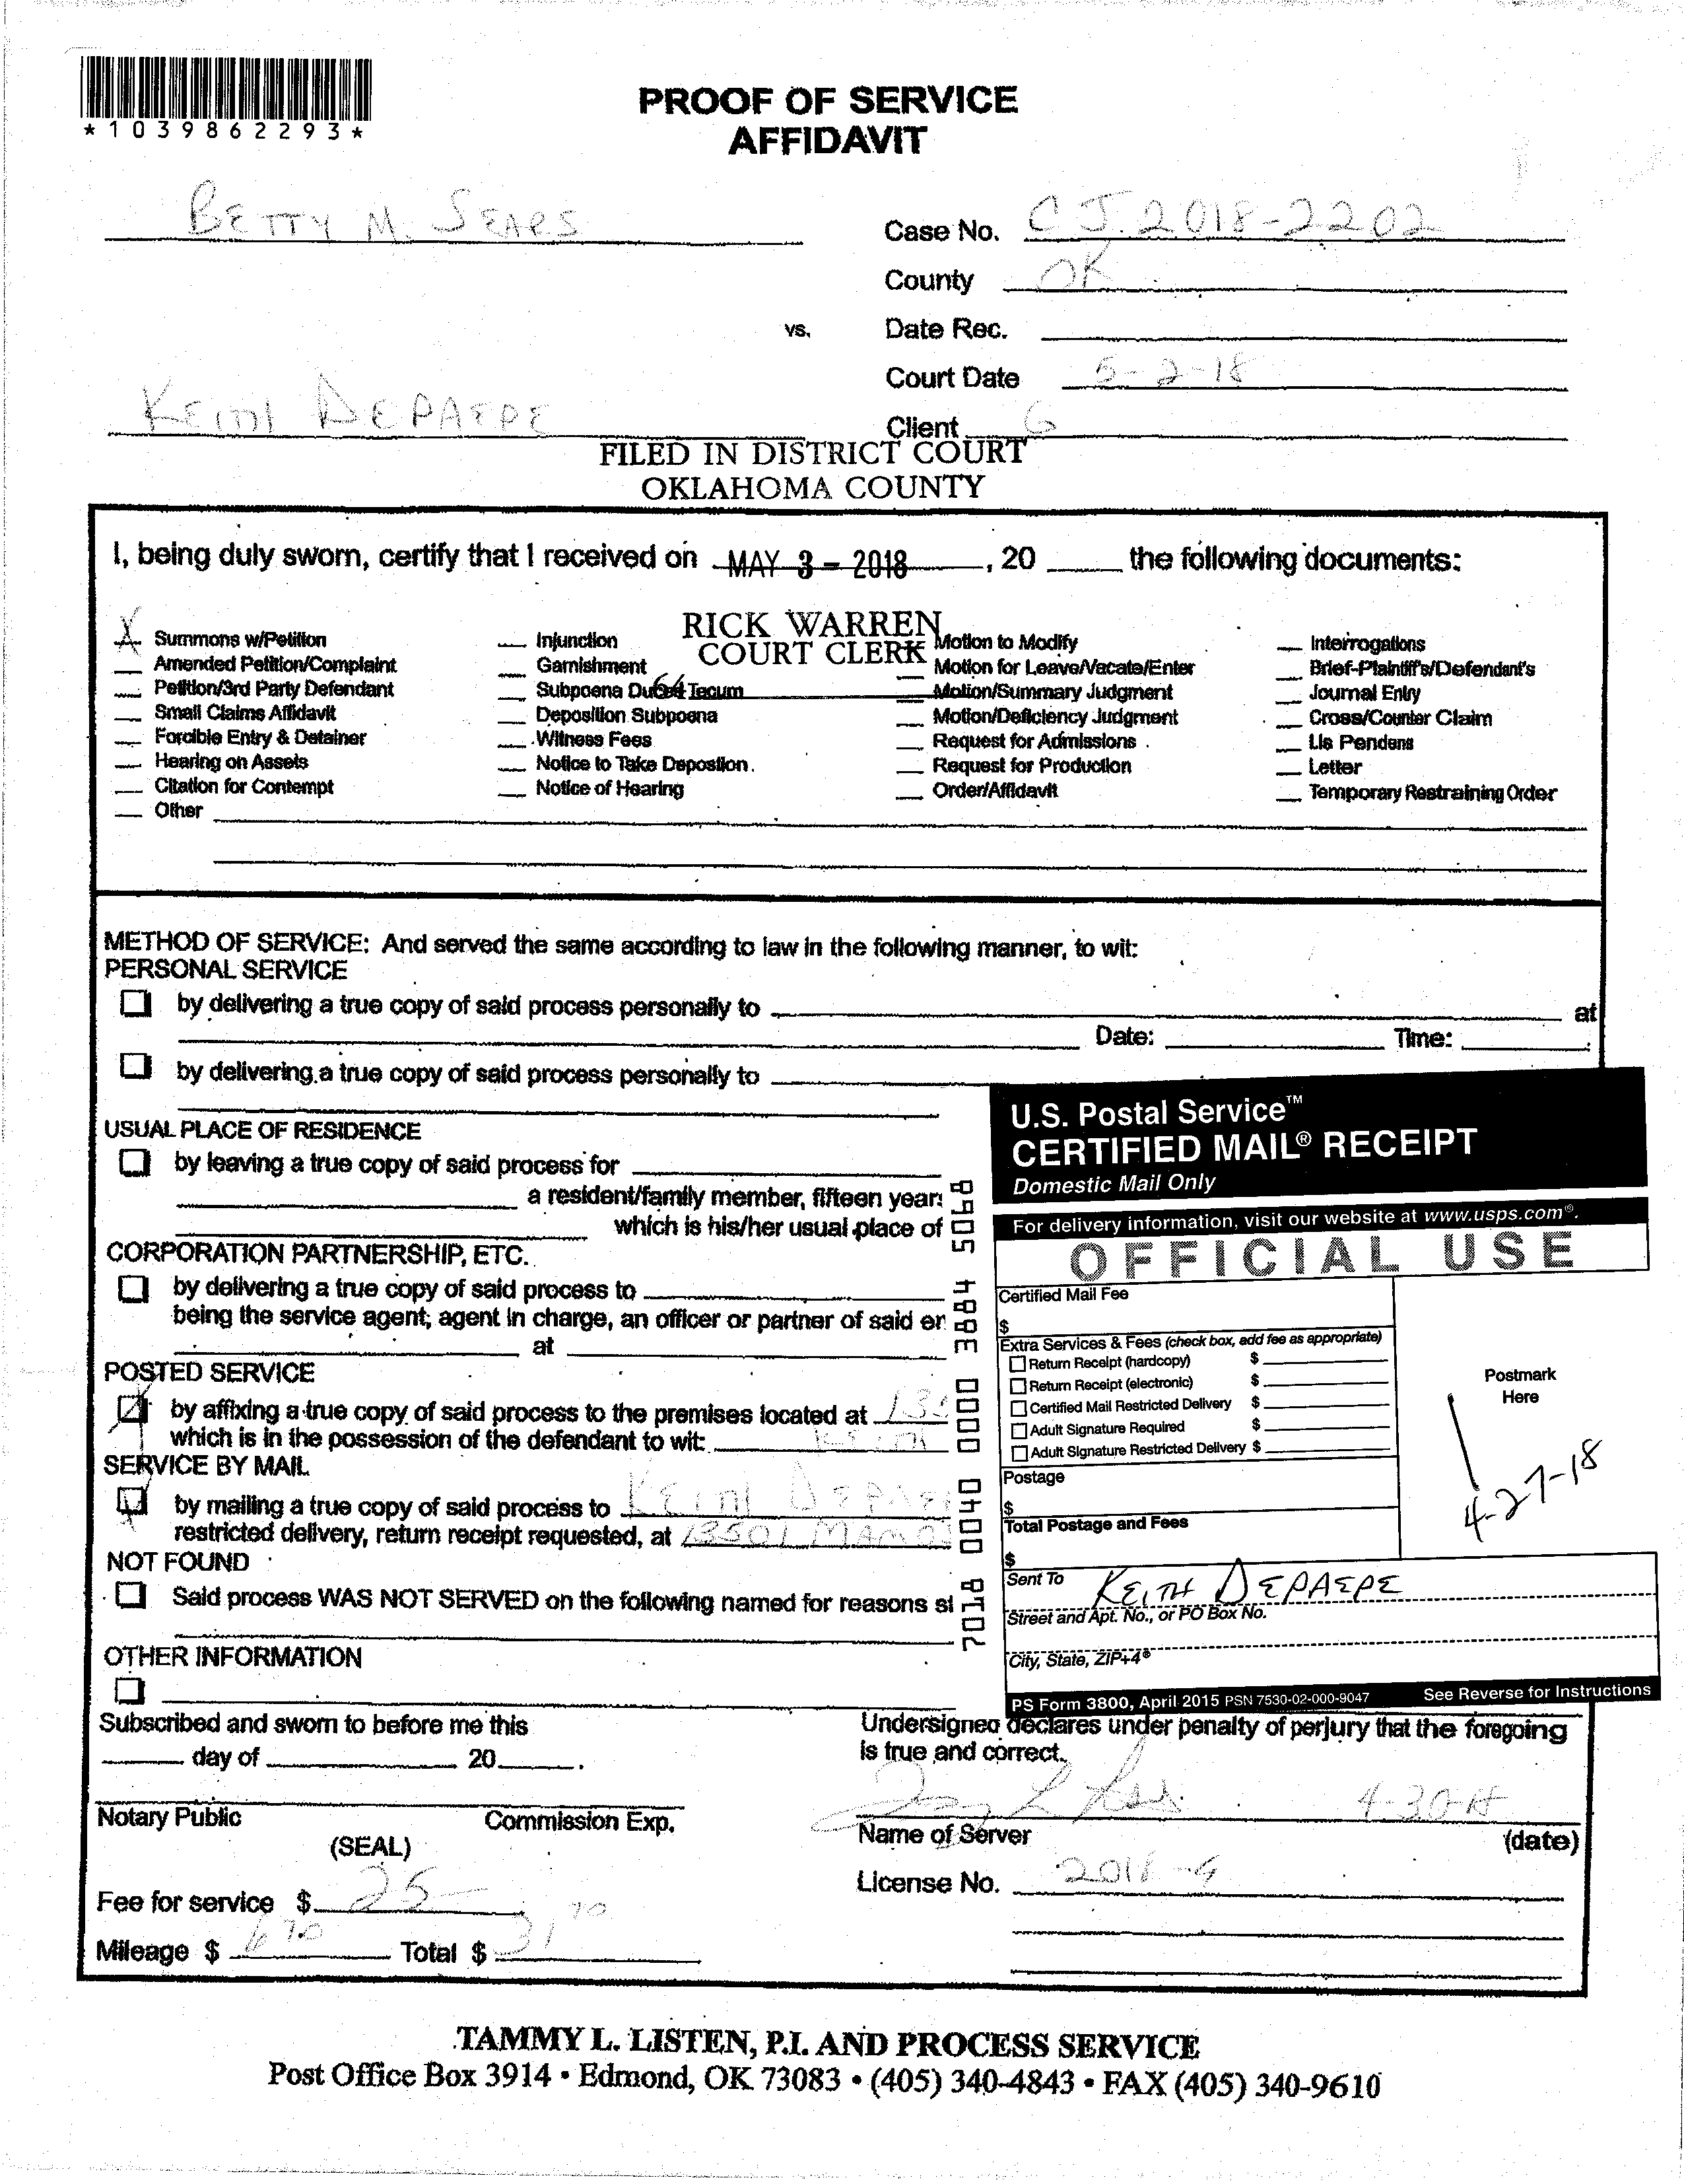 *1039862293*
PROOF OF SERVICE
AFFIDAVIT
BETTY M. SEARS
Case No. CJ.2018-2202
County OK
vs. Date Rec.
Court Date 5-2-18
KEITH DEPAEPE
Client G
FILED IN DISTRICT COURT
OKLAHOMA COUNTY
I, being duly sworn, certify that I received on MAY 3 - 2018, 20 ____ the following documents:
RICK WARREN
COURT CLERK
64
X Summons w/Petition
Amended Petition/Complaint
Petition/3rd Party Defendant
Small Claims Affidavit
Forcible Entry & Detainer
Hearing on Assets
Citation for Contempt
Other
Injunction
Garnishment
Subpoena Duces Tecum
Deposition Subpoena
Witness Fees
Notice to Take Depostion.
Notice of Hearing
Motion to Modify
Motion for Leave/Vacate/Enter
Motion/Summary Judgment
Motion/Deficiency Judgment
Request for Admissions
Request for Production
Order/Affidavit
Interrogations
Brief-Plaintiff's/Defendant's
Journal Entry
Cross/Counter Claim
Lis Pendens
Letter
Temporary Restraining Order
METHOD OF SERVICE: And served the same according to law in the following manner, to wit:
PERSONAL SERVICE
by delivering a true copy of said process personally to at
Date: Time:
by delivering a true copy of said process personally to
USUAL PLACE OF RESIDENCE
by leaving a true copy of said process for
a resident/family member, fifteen year
which is his/her usual place of
CORPORATION PARTNERSHIP, ETC.
by delivering a true copy of said process to
being the service agent; agent in charge, an officer or partner of said en
at
POSTED SERVICE
by affixing a true copy of said process to the premises located at 135
which is in the possession of the defendant to wit: KEITH
SERVICE BY MAIL
by mailing a true copy of said process to KEITH DEPAE
restricted delivery, return receipt requested, at 13501
NOT FOUND
Said process WAS NOT SERVED on the following named for reasons st
OTHER INFORMATION
7018 0040 0000 3884 5068
U.S. Postal Service™
CERTIFIED MAIL® RECEIPT
Domestic Mail Only
For delivery information, visit our website at www.usps.com®.
OFFICIAL USE
Certified Mail Fee
$
Extra Services & Fees (check box, add fee as appropriate)
Return Receipt (hardcopy) $
Return Receipt (electronic) $
Certified Mail Restricted Delivery $
Adult Signature Required $
Adult Signature Restricted Delivery $
Postage
$
Total Postage and Fees
$
Postmark
Here
4-27-18
Sent To KEITH DEPAEPE
Street and Apt. No., or PO Box No.
City, State, ZIP+4®
PS Form 3800, April 2015 PSN 7530-02-000-9047 See Reverse for Instructions
Subscribed and sworn to before me this
day of 20 .
Notary Public Commission Exp.
(SEAL)
Fee for service $ 25
Mileage $ 6 70 Total $ 31 70
Undersigned declares under penalty of perjury that the foregoing
is true and correct.
4-30-18
Name of Server (date)
License No. 2018-9
TAMMY L. LISTEN, P.I. AND PROCESS SERVICE
Post Office Box 3914 • Edmond, OK 73083 • (405) 340-4843 • FAX (405) 340-9610